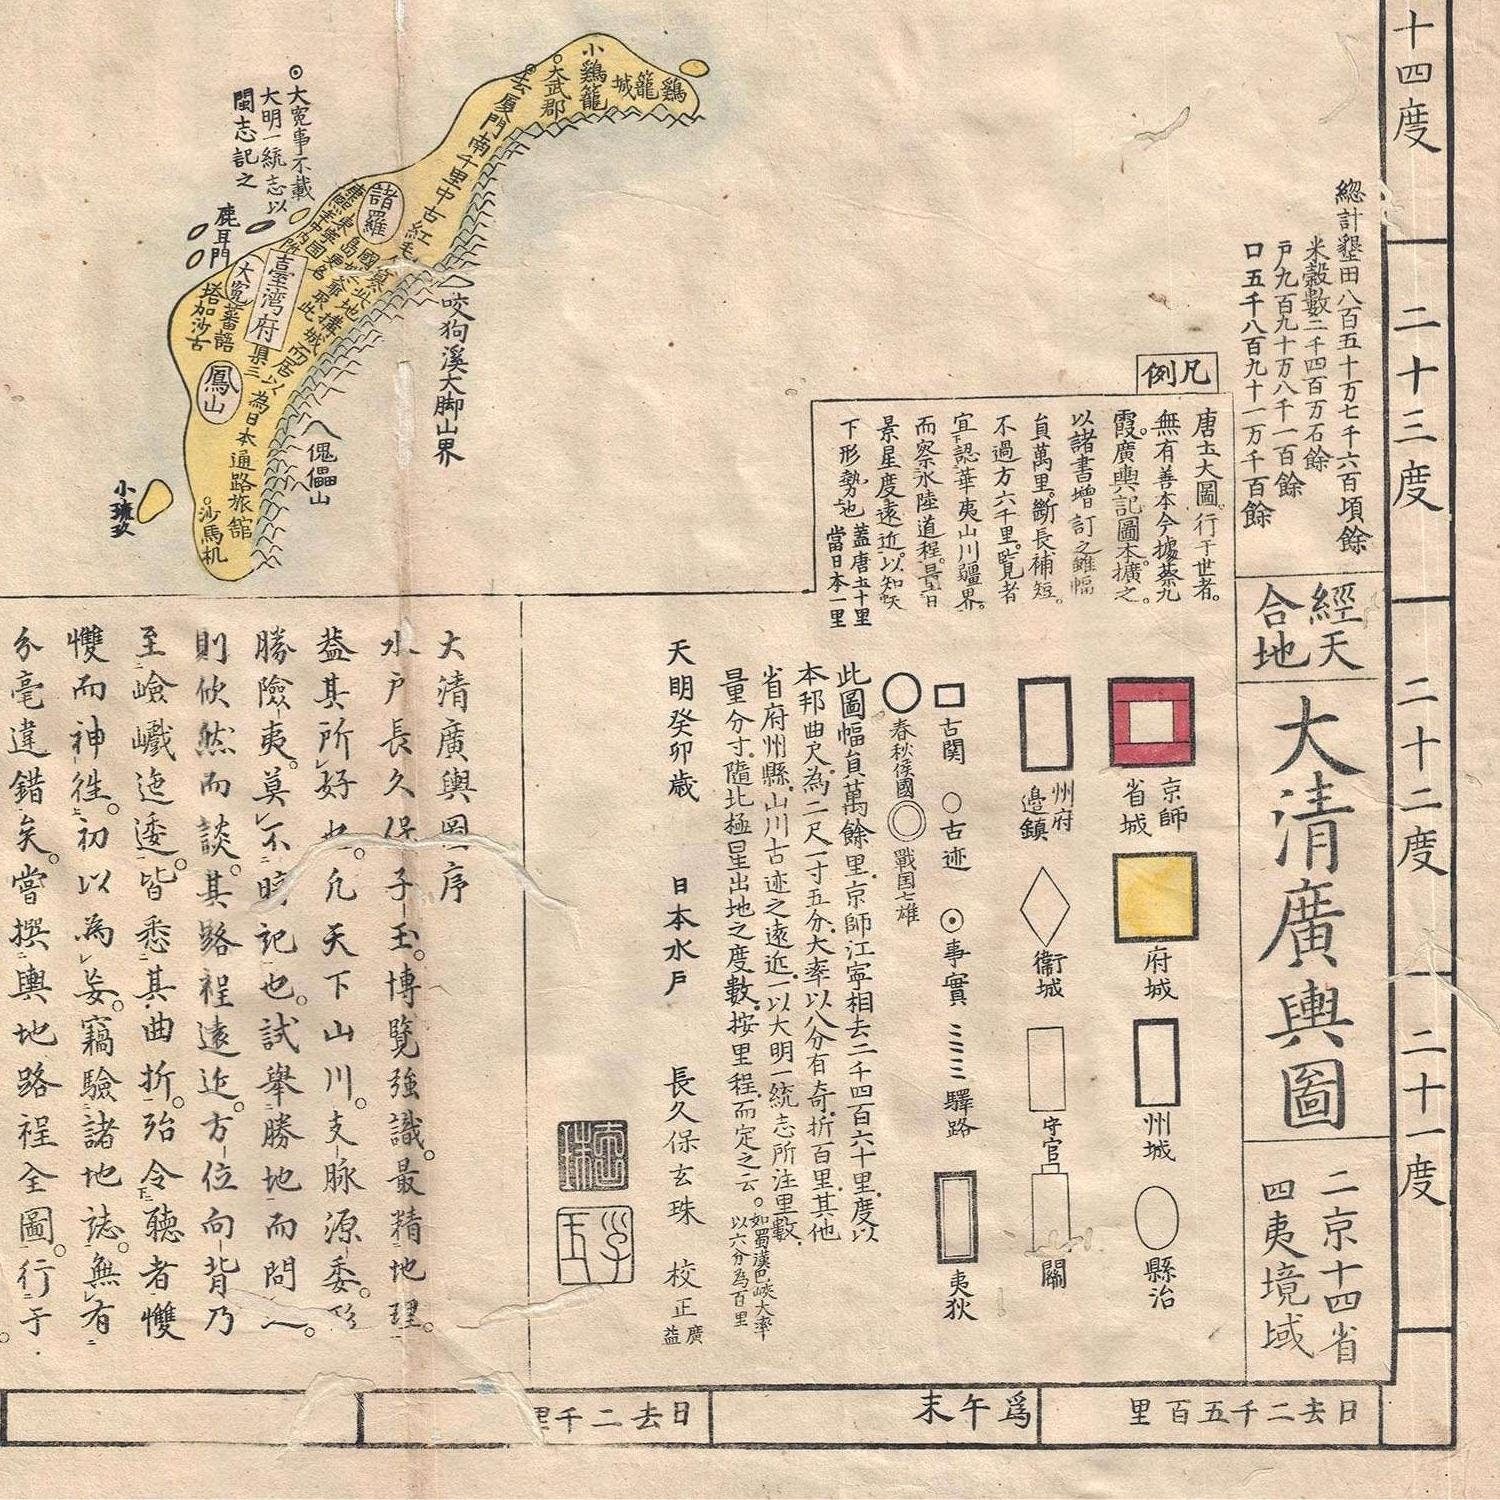 十四度
二十三度
二十二度
二十一度
總計墾田八百五十万七千六百頃餘
米穀數二千四百万石餘
戸九百九十万八千一百餘
口五千八百九十一万千百餘
經天
合地
大清廣輿圖
二京十四省
四夷境域
凡例
唐土大圖行于世者。
無有善本今據蔡九
霞廣輿記圖本擴之
以諸書增訂之雖幅
員萬里斷長補短
不過方六千里。覧者
宜認華夷山川疆界。
而察水陸道程。
景星度遠近。以知
下形勢也
蓋唐土十里
當日本一里
京師
省城
府城
州城
縣治
州府
邉鎮
衞城
守官
關
古関
古迹
事實
驛路
夷狄
春秋侯國
戰国七雄
此圖幅員萬餘里。京師江寧相去二千四百六十里。度以
本邦曲尺。為二尺一寸五分。大率以八分有奇。折百里其他
省府州縣。山川古迹之遠近。一以大明一統志所注里數。
量分寸。隨北極星出地之度數。按里程。而定之云。
如蜀漢巴峽大率
以六分為百里
天明癸卯歳
日本水戸 長久保玄珠 校正
廣
益
大清廣輿圖序
水戸長久保子玉。博覧強識。最精地理。
益其所好也。凢天下山川。支脉源委。形
勝險夷。莫不時記也。試舉勝地而問
則佽然而談。其路程遠近。方位向背乃
至嶮巇迆逶。皆悉其曲折。殆令聴者慢
慢而神徃。初以為妄。竊驗諸地誌。無有
分毫違錯矣。嘗撰輿地路程全圖。行于
鷄籠城
小鷄籠
大武郡
去厦門南千里中古紅毛
諸羅
臺湾府
縣三
大寃
蕃語
塔加沙古
鳳山
為日本通路旅館
沙馬机
鹿耳門
大寃事不載
大明一統志以
閩志記之
咬狗溪大脚山界
傀儡山
小琉玖
日去二千五百里
爲午末
日去二千里